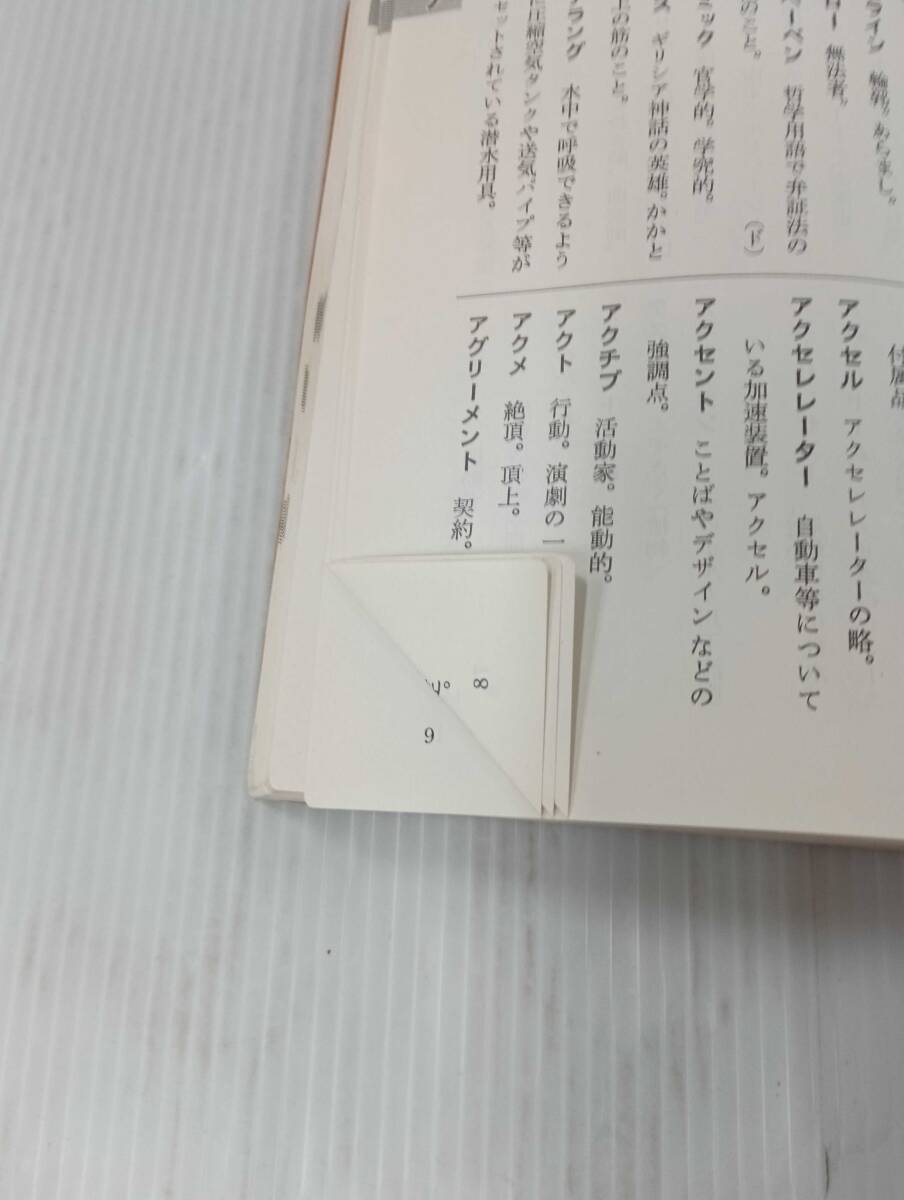 ライン 輪郭。あらまし。
ロー 無法者。
ーベン 哲学用語で弁証法の
のこと。 （ド）
ミック 官学的。学究的。
ス ギリシア神話の英雄。かかと
上の筋のこと。
ラング 水中で呼吸できるよう
に圧縮空気タンクや送気パイプ等が
セットされている潜水用具。
付属品
アクセル アクセレレーターの略。
アクセレレーター 自動車等につい​て
いる加速装置。アクセル。
アクセント ことばやデザインなどの
強調点。
アクチブ 活動家。能動的。
アクト 行動。演劇の一
アクメ 絶頂。頂上。
アグリーメント 契約。
8
9